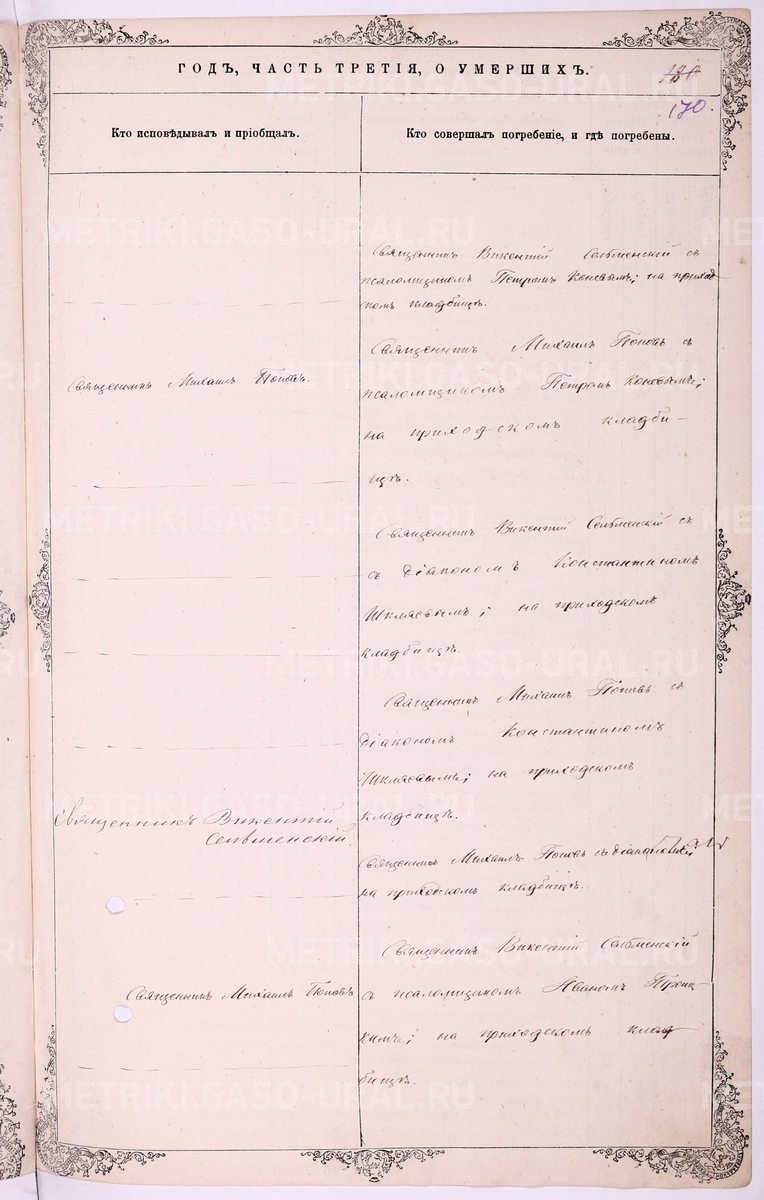 ГОДЪ, ЧАСТЬ ТРЕТІЯ, О УМЕРШИХЪ.
170.
Кто исповѣдывалъ и пріобщалъ.
Кто совершалъ погребеніе, и гдѣ погребены.
Священникъ Викентій Сельменскій съ
псаломщикомъ Петромъ на приход
скомъ кладбищѣ.
Священникъ Михаилъ Поповъ.
Священникъ Михаилъ Поповъ съ
псаломщикомъ Петромъ
на приходскомъ кладби-
щѣ.
Священникъ Викентій Сельменскій съ
съ діакономъ Константиномъ
на приходскомъ
кладбищѣ.
Священникъ Михаилъ Поповъ съ
діакономъ Константиномъ
на приходскомъ
кладбищѣ.
Священникъ Викентій
Сельменскій.
Священникъ Михаилъ Поповъ съ
на приходскомъ кладбищѣ.
Священникъ Михаилъ Поповъ
Священникъ Викентій Сельменскій
съ псаломщикомъ Иваномъ
на приходскомъ клад
бищѣ.
METRIKI.GASO-URAL.RU